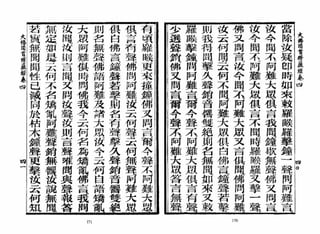 大佛頂首楞嚴經卷四
當除汝疑即時如來敕羅睺羅擊鐘一聲問阿難言
汝今聞不阿難大眾俱言我聞鐘歇無聲佛又問言
汝今聞不阿難大眾俱言不聞時羅睺羅又擊一聲
佛又問言汝今聞不阿難大眾又言俱聞佛問阿難
汝云何聞云何不聞阿難大眾俱白佛言鐘聲若擊
則我得聞擊久聲銷音響雙絕則名無聞如來又敕
羅睺擊鐘問阿難言爾今聲不阿難大眾俱言有聲
少選聲銷佛又問言爾今聲不阿難大眾答言無聲
有頃羅睺更來撞鐘佛又問言爾今聲不阿難大眾
俱言有聲佛問阿難汝云何聲云何無聲阿難大眾
俱白佛言鐘聲若擊則名有聲擊久聲銷音響雙絕
則名無聲佛語阿難及諸大眾汝今云何自語矯亂
大眾阿難俱時問佛我今云何名為矯亂佛言我問
汝聞汝則言聞又問汝聲汝則言聲唯聞與聲報答
無定如是云何不名矯亂阿難聲銷無響汝說無聞
若實無聞聞性已滅同於枯木鐘聲更擊汝云何知
大佛頂首楞嚴經卷四
四一